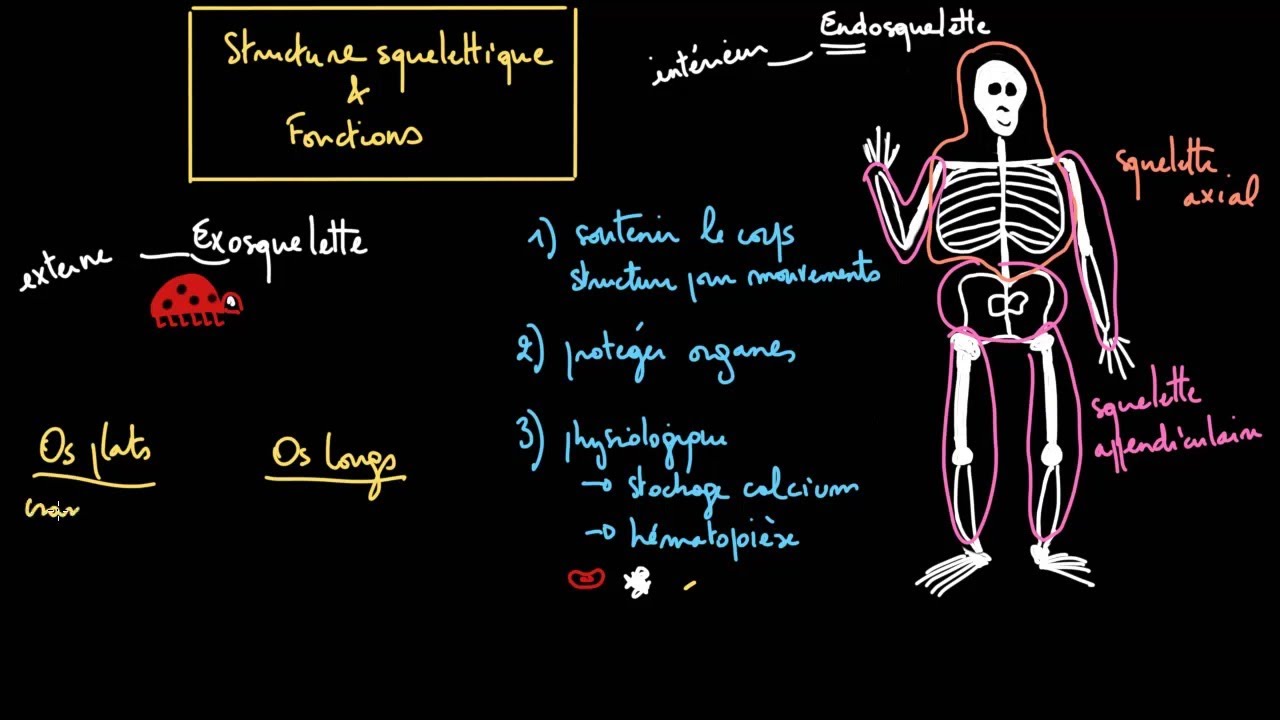 Structure squelettique
&
Fonctions
intérieur
Endosquelette
squelette
axial
externe
Exosquelette
1) soutenir le corps
structure pour mouvements
2) protéger organes
3) physiologique
→ stockage calcium
→ hématopoièse
squelette
appendiculaire
Os plats
Os longs